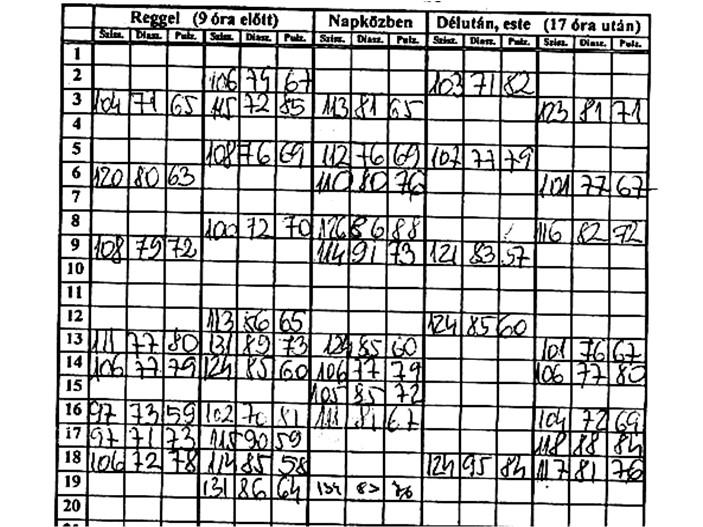 Reggel (9 óra előtt) Napközben Délután, este (17 óra után)
Szisz. Diasz. Pulz. Szisz. Diasz. Pulz. Szisz. Diasz. Pulz. Szisz. Diasz. Pulz. Szisz. Diasz. Pulz.
1
2 106 79 67 103 71 82
3 104 71 65 115 72 85 113 81 65 123 81 71
4
5 108 76 69 112 76 69 107 77 79
6 120 80 63 110 80 76 101 77 67
7
8 100 72 70 126 86 88 116 82 72
9 108 79 72 114 91 73 121 83 57
10
11
12 113 86 65 124 85 60
13 111 77 80 131 89 73 124 85 60 101 76 67
14 106 77 79 124 85 60 106 77 79 106 77 80
15 105 85 72
16 97 73 59 102 70 81 111 81 67 104 72 69
17 97 71 73 115 90 59 118 88 84
18 106 72 78 114 85 58 124 95 84 117 81 76
19 131 86 64
20